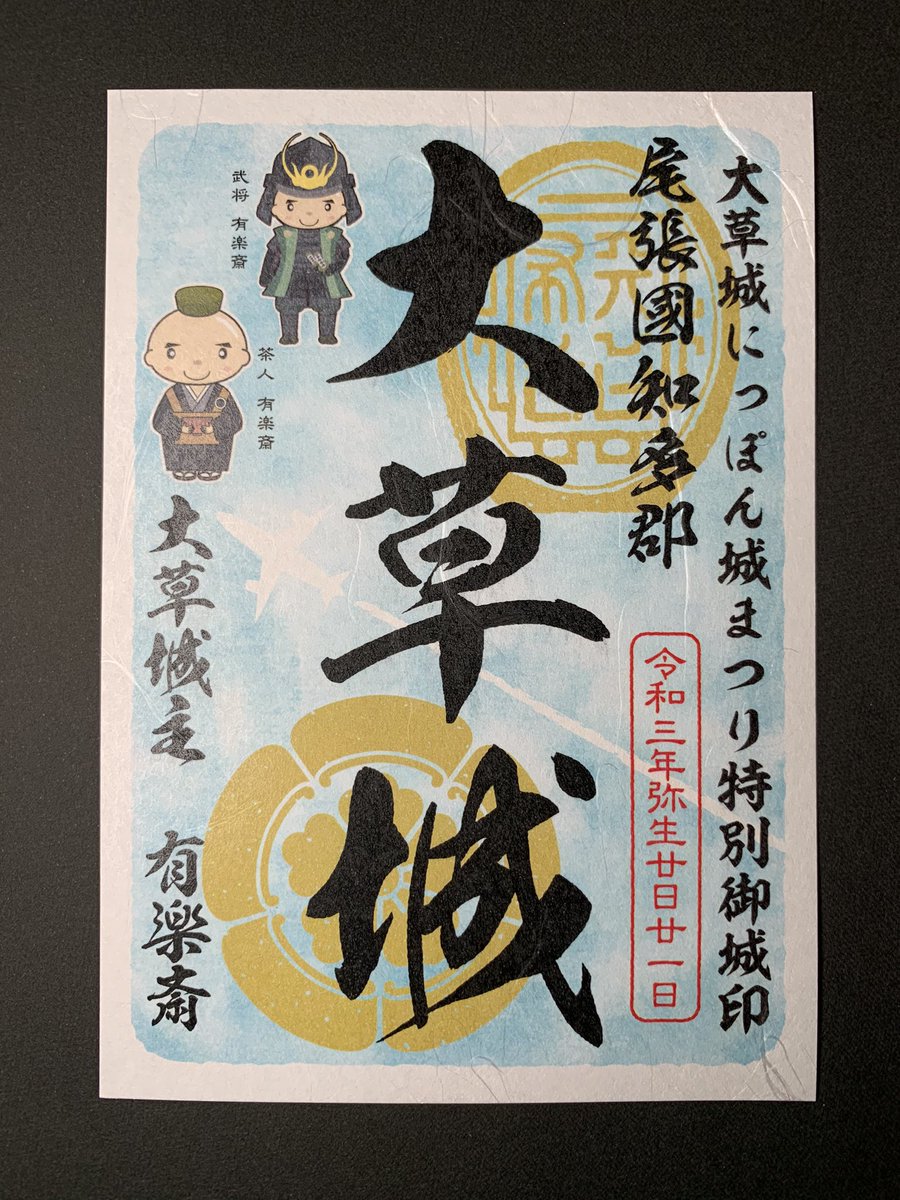 大草城にっぽん城まつり特別御城印
尾張國知多郡
令和三年弥生廿日廿一日
大草城
武将 有楽斎
茶人 有楽斎
大草城主 有楽斎